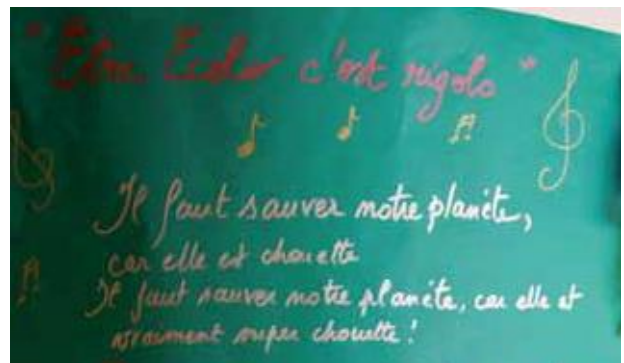 "Etre Ecolo c'est rigolo"
Il faut sauver notre planète,
car elle est chouette
Il faut sauver notre planète, car elle est
vraiment super chouette !